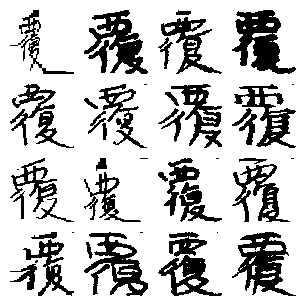 覆覆覆覆
覆覆覆覆
覆覆覆覆
覆覆覆覆